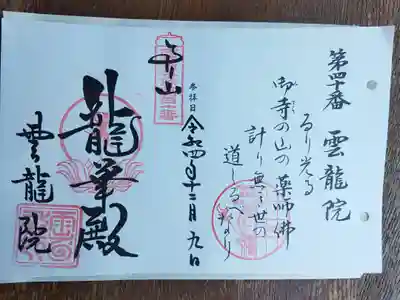 第四十番 雲龍院
るり光る
御寺の山の 薬師佛
計り無き世の
道しるべなり
参拝日 令和四年十二月九日
龍華殿
雲龍院